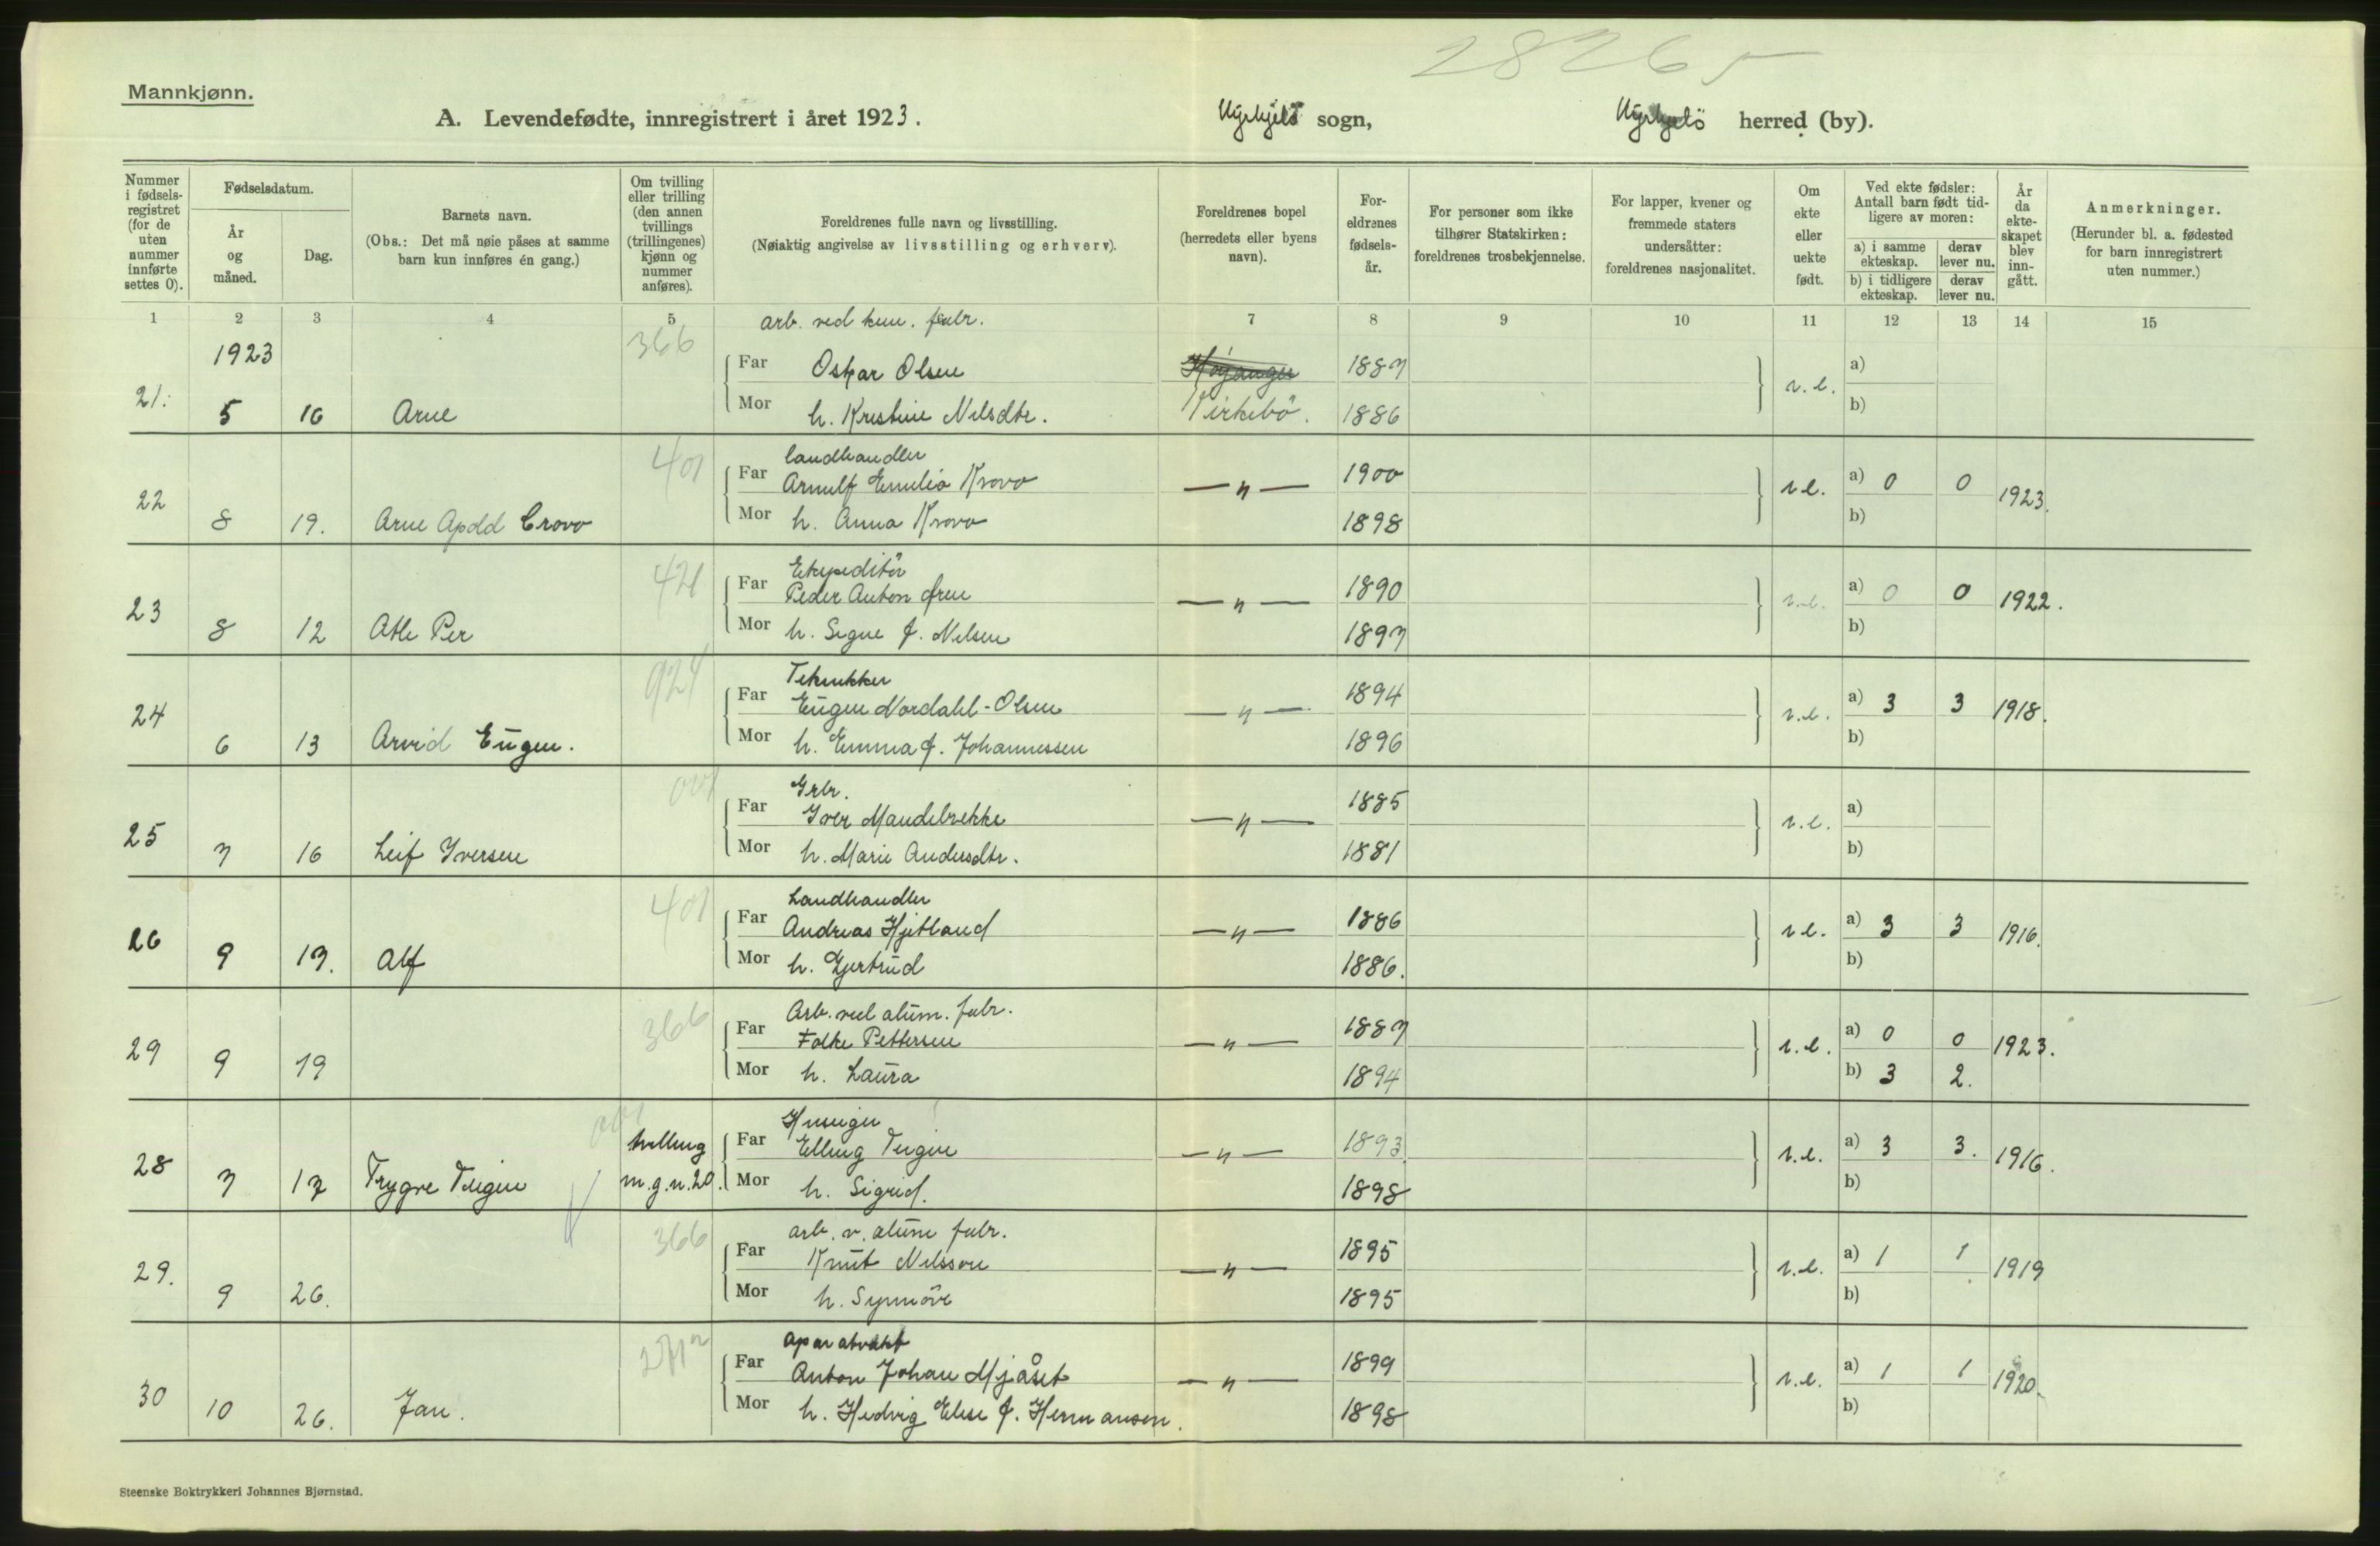 28265
Mannkjønn.
A. Levendefødte, innregistrert i året 1923. sogn, herred (by).
Nummer i fødselsregistret (for de uten nummer innførte settes 0).
Fødselsdatum.
År og måned.
Dag.
Barnets navn.
(Obs.: Det må nøie påses at samme barn kun innføres én gang.)
Om tvilling eller trilling (den annen tvillings (trillingenes) kjønn og nummer anføres).
Foreldrenes fulle navn og livsstilling.
(Nøiaktig angivelse av livsstilling og erhverv).
Foreldrenes bopel (herredets eller byens navn).
Foreldrenes fødselsår.
For personer som ikke tilhører Statskirken: foreldrenes trosbekjennelse.
For lapper, kvener og fremmede staters undersåtter: foreldrenes nasjonalitet.
Om ekte eller uekte født.
Ved ekte fødsler: Antall barn født tidligere av moren:
a) i samme ekteskap. derav lever nu.
b) i tidligere ekteskap. derav lever nu.
År da ekteskapet blev inngått.
Anmerkninger.
(Herunder bl. a. fødested for barn innregistrert uten nummer.)
1 2 3 4 5 7 8 9 10 11 12 13 14 15
arb. ved kem. fabr.
1923 366
Far Oskar Olsen Høyanger 1887 a)
21. 5 16 Arne Mor h. Kristine Nilsdtr. Kirkebö. 1886 e. b)
401 landhandler
Far Arnulf Emilio Krovo — " — 1900 a) 0 0 1923.
22 8 19. Arne Apold Crovo Mor h. Anna Krovo 1898 e. b)
421 Ekspeditör
Far Peder Anton — " — 1890 a) 0 0 1922.
23 8 12 Atle Per Mor h. Signe f. Nilsen 1897 e. b)
924 Tekniker
Far Eugen Nordahl-Olsen — " — 1894 a) 3 3 1918.
24 6 13 Arvid Eugen. Mor h. Emma f. Johannessen 1896 e. b)
001 Grbr.
Far Iver Mandelrekke — " — 1885 a)
25 7 16 Leif Iversen Mor h. Marie Andersdtr. 1881 e. b)
401 Landhandler
Far Andreas Hjetland — " — 1886 a) 3 3 1916.
26 9 17. Alf Mor h. Gjertrud 1886. e. b)
366 Arb. ved alum. fabr.
Far Folke Pettersen — " — 1887 a) 0 0 1923.
29 9 19 Mor h. Laura 1894 e. b) 3 2.
001 tvilling Huseiger
Far Elling Teigen — " — 1893. a) 3 3. 1916.
28 7 17 Trygve Teigen m.g.n. 20. Mor h. Sigrid. 1898 e. b)
366 arb. v. alum fabr.
Far Knut Nilsson — " — 1895 a) 1 1 1919
29. 9 26. Mor h. Synnöve 1895 e. b)
aparatvakt
Far Anton Johan Mjåset — " — 1899 a) 1 1 1920.
30 10 26. Jan. Mor h. Hedvig Elise f. Hermansen. 1898 e. b)
Steenske Boktrykkeri Johannes Bjørnstad.